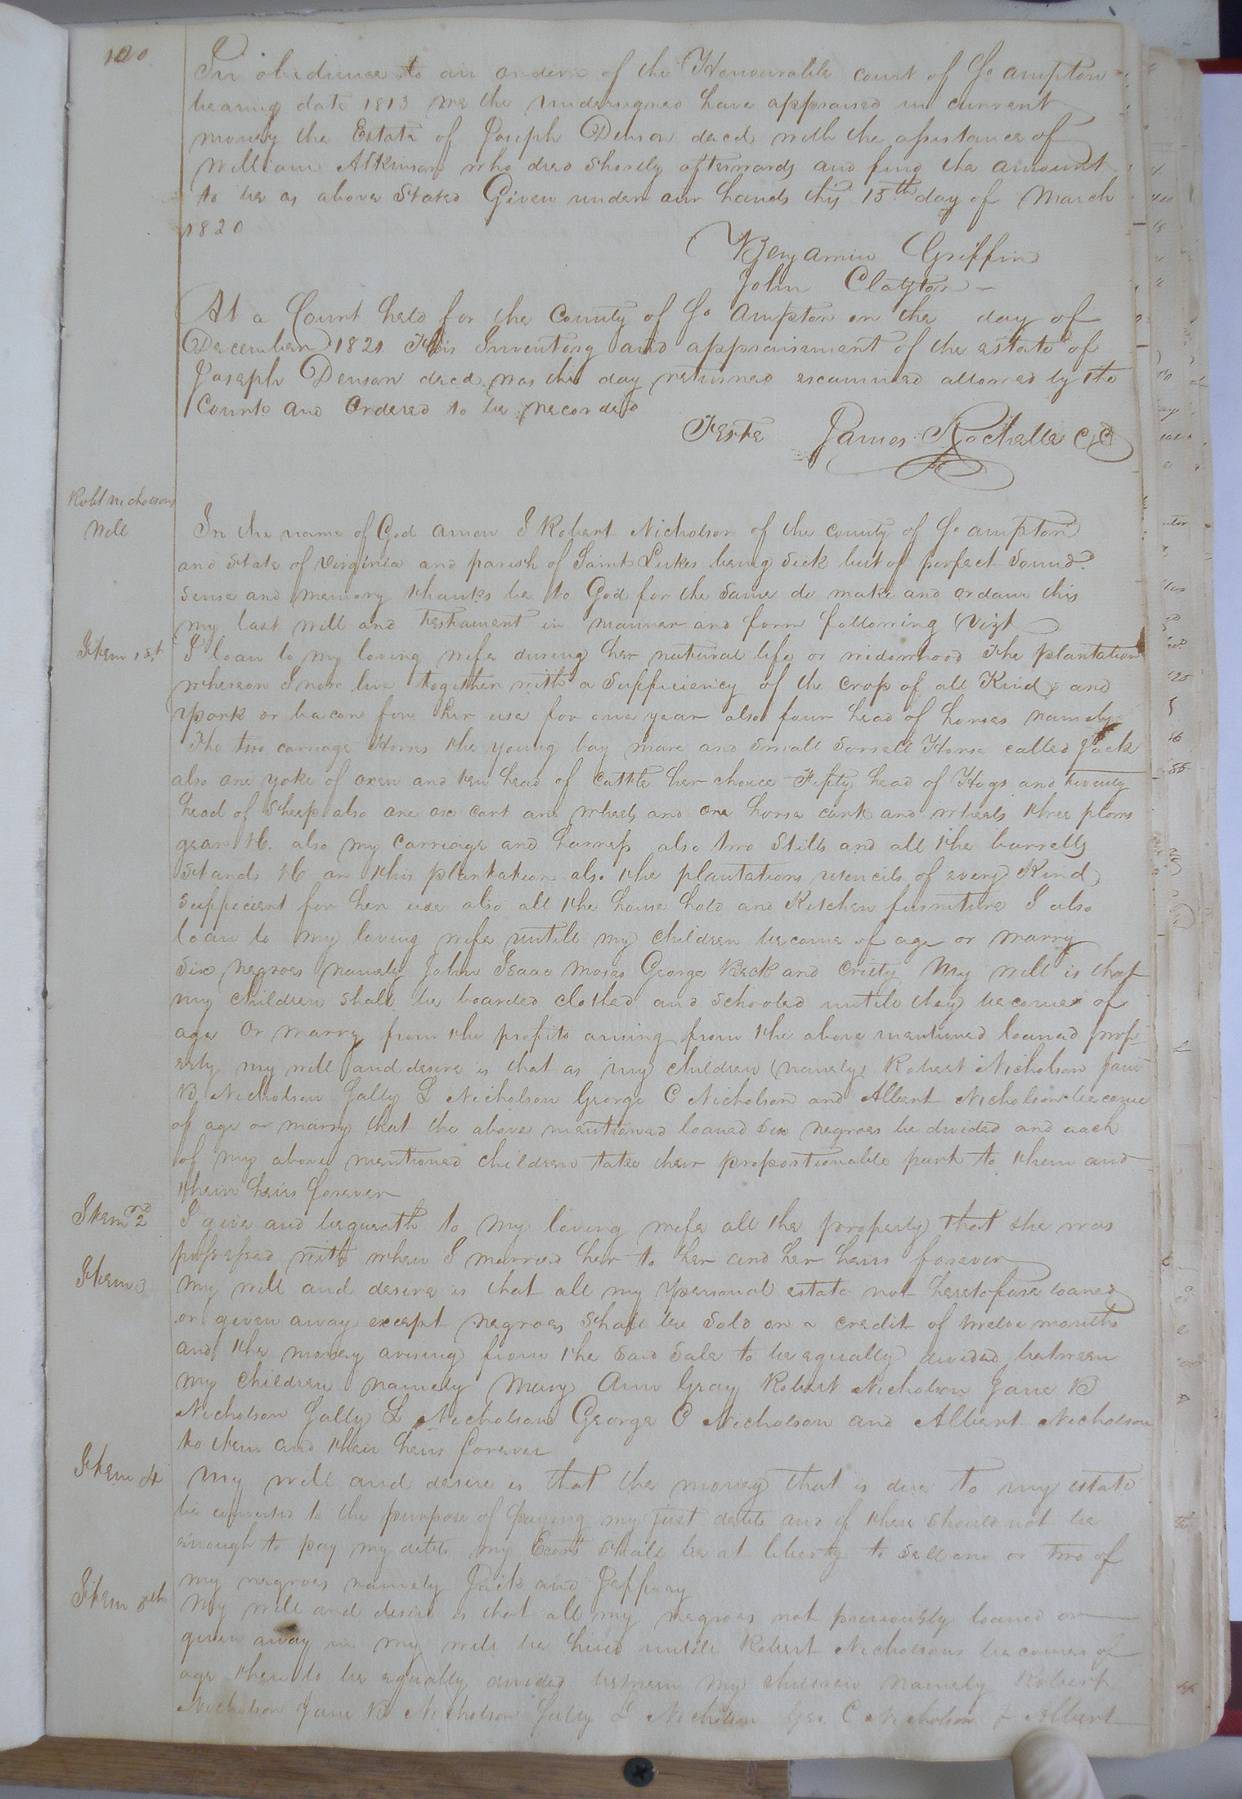 120
In obedience to an order of the Honourable court of So ampton
bearing date 1813 we the undersigned have appraised in current
money the Estate of Joseph Denson decd with the assistance of
William Atkinson who died shortly afterwards and find the amount
to be as above Stated Given under our hands this 15th day of March
1820
Benjamin Griffin
John Clayton
At a Court held for the County of So ampton on the day of
December 1820 This Inventory and appraisement of the estate of
Joseph Denson decd was this day returned examined allowed by the
Court and Ordered to be recorded
Teste James Rochelle C C
Robt Nicholsons
Will
In the name of God amen I Robert Nicholson of the county of So ampton
and State of Virginia and parish of Saint Lukes being Sick but of perfect Sound
Sense and memory thanks be to God for the Same do make and ordain this
my last will and testament in manner and form following Vizt
Item 1st
I loan to my loving wife during her natural life or widowhood the plantation
whereon I now live together with a Sufficiency of the crop of all Kind and
pork or bacon for her use for one year also four head of horses namely
The two carriage Horses the young bay mare and Small Sorrell Horse called Jack
also one yoke of oxen and ten head of Cattle her choice Fifty head of Hogs and twenty
head of Sheep also one ox cart and wheels and one horse cart and wheels three plows
gear &c. also my Carriage and harness also two Stills and all the barrells
Stands &c on this plantation also the plantation utencils of every Kind
Sufficient for her use also all the house hold and Kitchen furniture I also
loan to my loving wife untill my children become of age or marry
Six negroes namely John Isaac Moses George Beck and Cristy My will is that
my children shall be boarded clothed and schooled untill they become of
age Or marry from the profits arising from the above mentioned loaned prop
erty my will and desire is that as my children (namely) Robert Nicholson Jane
B Nicholson Sally L Nicholson George C Nicholson and Albert Nicholson become
of age or marry that the above mentioned loaned Six negroes be divided and each
of my above mentioned children take their proportionable part to them and
their heirs forever
Item 2nd
I give and bequeath to my loving wife all the property that she was
possessed with when I married her to her and her heirs forever
Item 3
My will and desire is that all my personal estate not heretofore loaned
or given away except negroes shall be Sold on a credit of twelve months
and the money arising from the said Sale to be equally divided between
my children namely Mary Ann Gray Robert Nicholson Jane B
Nicholson Sally L Nicholson George C Nicholson and Albert Nicholson
to them and their heirs forever
Item 4
My will and desire is that the money that is due to my estate
be converted to the purpose of paying my just debts and if there should not be
enough to pay my debts my Exors shall be at liberty to Sell one or two of
my negroes namely Jack and Jeffrey
Item 5th
My will and desire is that all my negroes not previously loaned or
given away in my will be hired untill Robert Nicholson becomes of
age then to be equally divided between my children namely Robert
Nicholson Jane B Nicholson Sally L Nicholson Geo C Nicholson & Albert